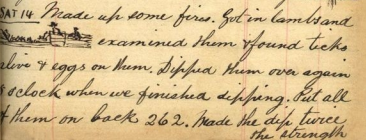 SAT 14 Made up some fires. Got in lambs and
examined them & found ticks
alive & eggs on them. Dipped them over again
oclock when we finished dipping. Put all
them on back 262. Made the dip twice
the strength